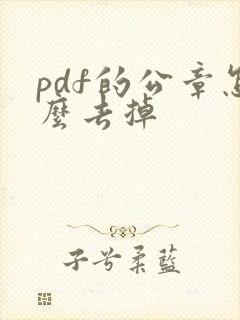 pdf的公章怎
麼去掉
子兮柔藍